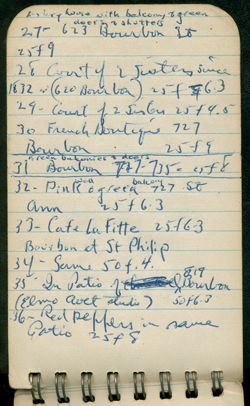 house with balcony & green
doors & shutters
27- 623 Bourbon St
25 f 9
28 Court of 2 Sisters since
1832 - (620 Bourbon) 25 f 6.3
29- Court of 2 Sisters 25 f 4.5
30 French Boutique 727
Bourbon 25 f 9
green balconies & doors
31 Bourbon 727-735- 25 f 8
32- Pink & green balcony 727 St
Ann 25 f 6.3
33- Cafe LaFitte 25 f 6.3
Bourbon at St Philip
34- Same 50 f. 4.
35- In Patio of 819 Bourbon
(Elmo Avet studio) 50 f 6.3
36- Red Peppers in same
Patio 25 f 8